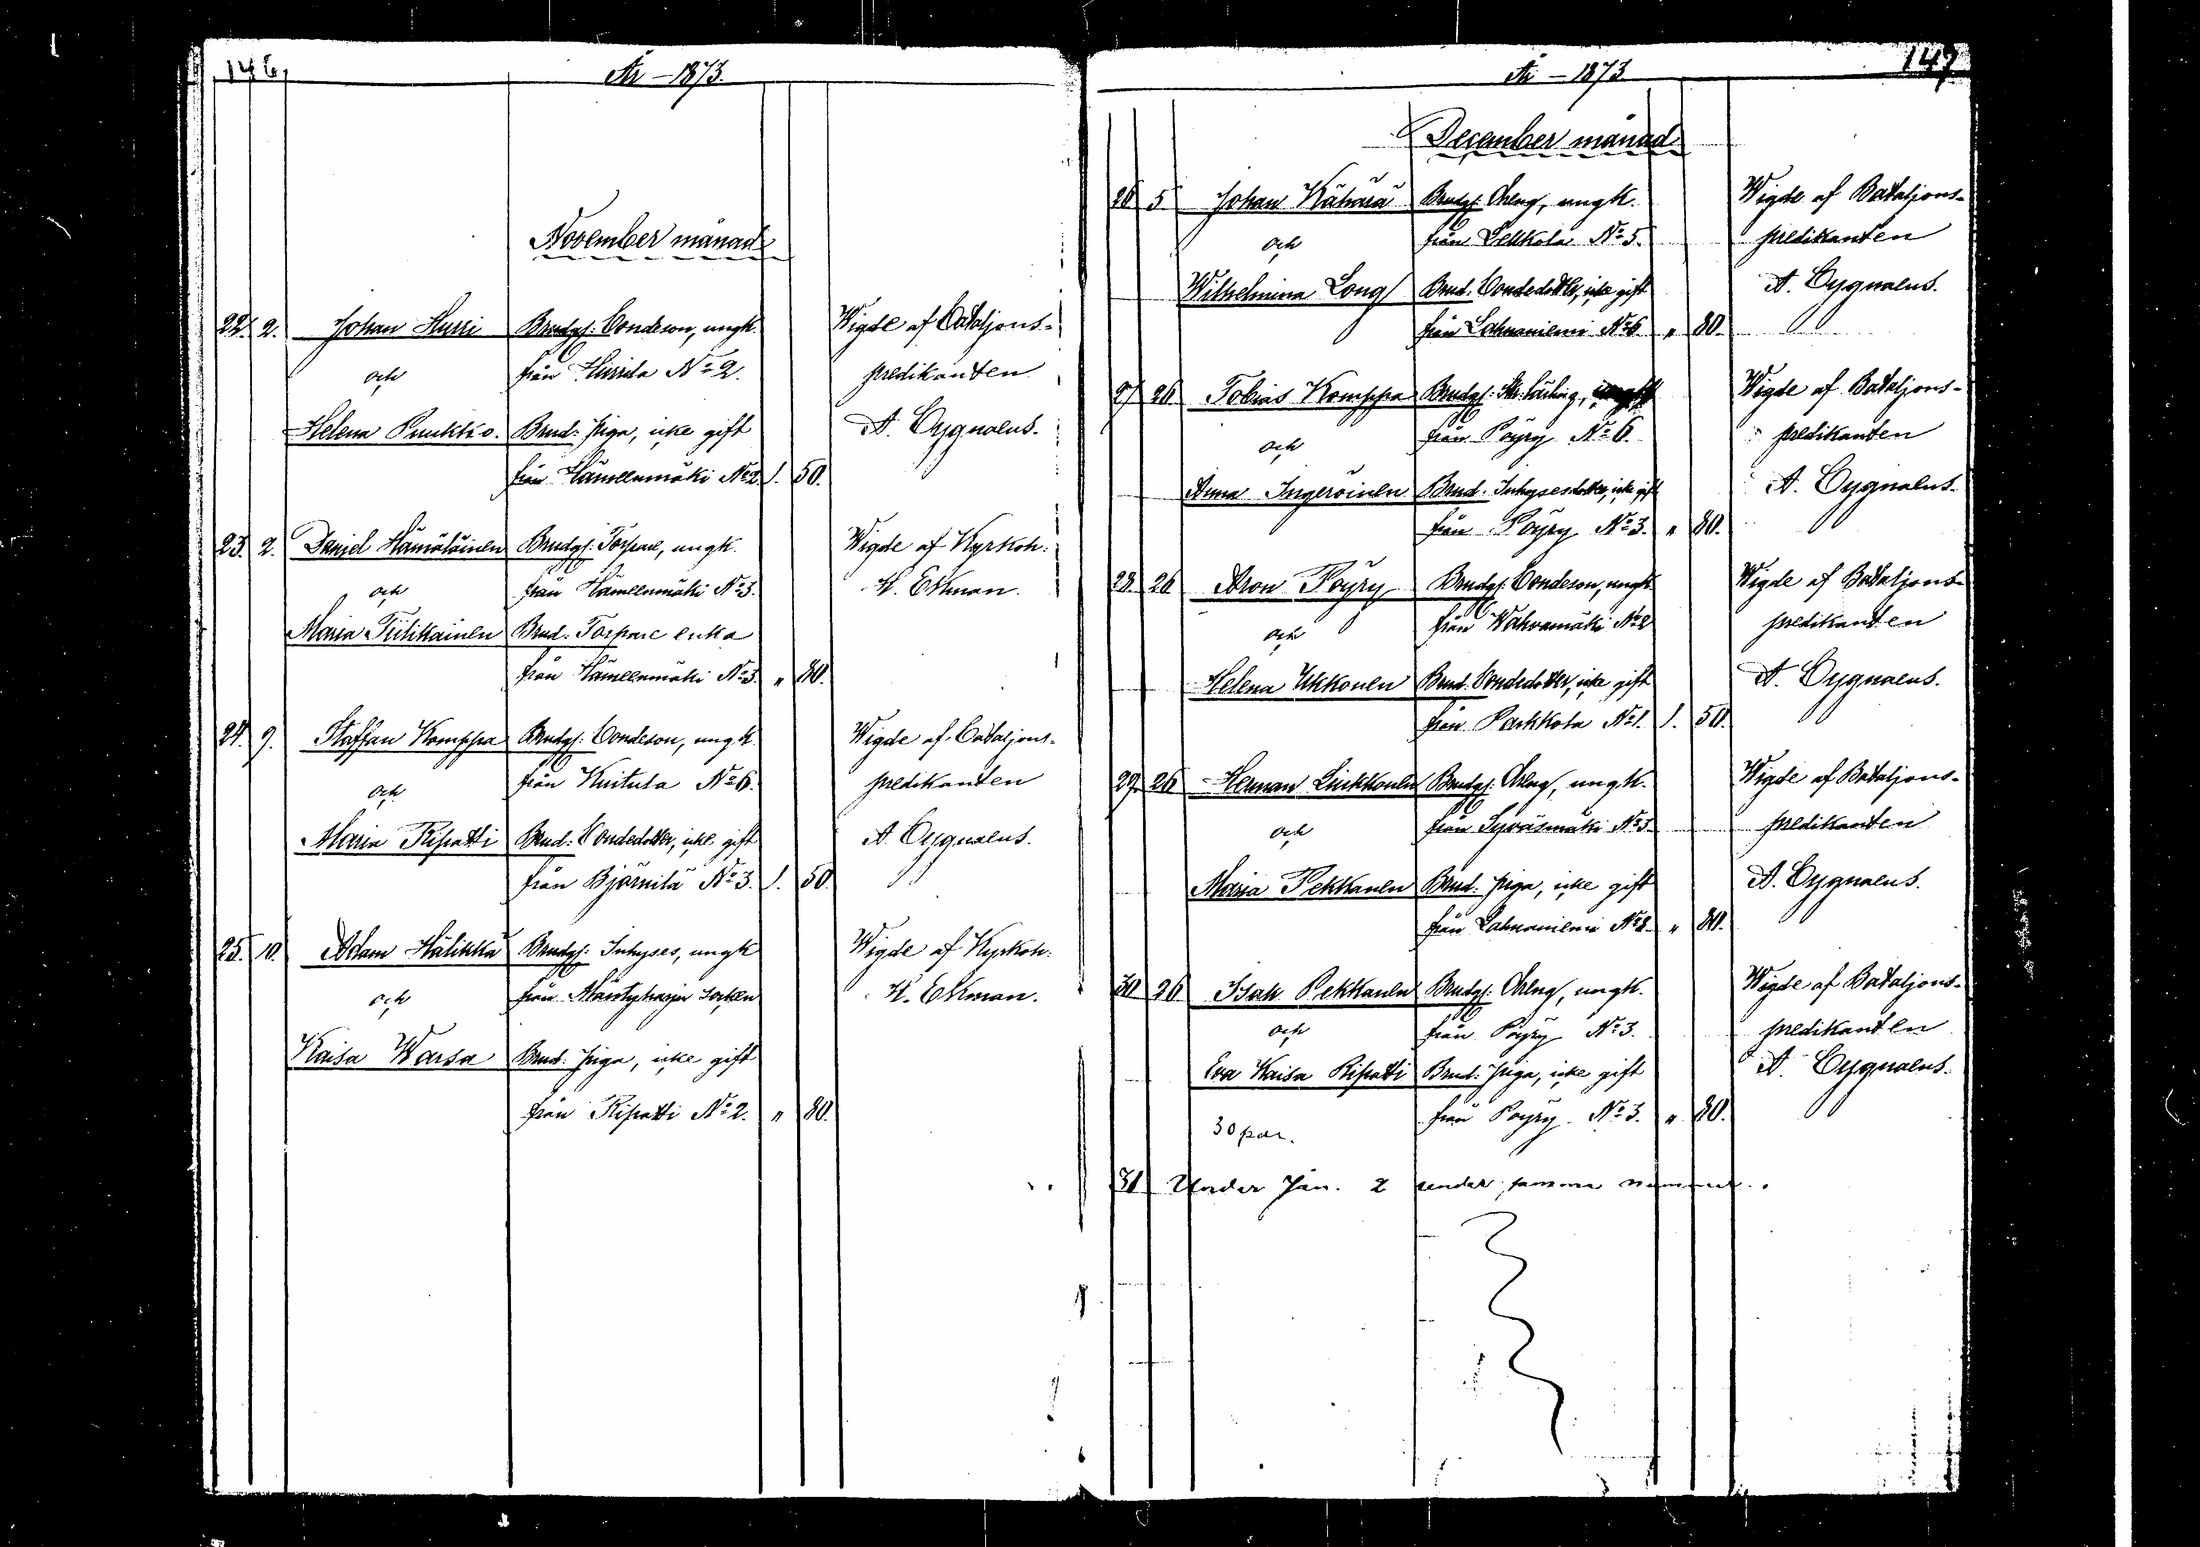 146.
År – 1873.
November månad
22. 2. Johan Hurri Brudg: Bondeson, ungk. Wigde af Bataljons-
och från Hurrila No 2. predikanten
Helena Puukko. Brud: piga, icke gift A. Cygnaeus.
från Hämeenmäki No 2 1. 50.
23. 2. Daniel Hämäläinen Brudg: Torpare, ungk. Wigde af Kyrkoh:
och från Hämeenmäki No 3. K. Ekman.
Maria Tiilikainen Brud: Torpare enka
från Hämeenmäki No 3. " 80.
24. 9. Staffan Komppa Brudg: Bondeson, ungk. Wigde af Bataljons-
och från Kuitula No 6. predikanten
Maria Ripatti Brud: Bondedotter, icke gift A. Cygnaeus.
från Björnilä No 3. 1. 50.
25. 10. Adam Hälikkä Brudg: Inhyses, ungk Wigde af Kyrkoh:
och från Mäntyharju Socken K. Ekman.
Kaisa Warsa Brud: piga, icke gift
från Ripatti No 2. " 80.
147
År – 1873
December månad
26 5 Johan Kähärä Brudg: Dreng, ungk. Wigde af Bataljons-
och från No 5. predikanten
Wilhelmina Long Brud: Bondedotter, icke gift A. Cygnaeus.
från Lahnaniemi No 6. " 80.
27 26 Tobias Komppa Brudg: Wigde af Bataljons-
och från Pöyry No 6. predikanten
Anna Ingeröinen Brud: Inhysesdotter, icke gift A. Cygnaeus.
från Pöyry No 3. " 80.
28. 26 Aron Pöyry Brudg: Bondeson, ungk. Wigde af Bataljons-
och från Wahvamäki No 2 predikanten
Helena Ukkonen Brud: Bondedotter, icke gift A. Cygnaeus.
från Parkkola No 1. 1. 50.
29. 26 Herman Liukkonen Brudg: Dreng, ungk. Wigde af Bataljons-
och från Syväsmäki No 3 predikanten
Maria Pekkanen Brud: piga, icke gift A. Cygnaeus.
från Lahnaniemi No 2. " 80.
30 26 Isak Pekkanen Brudg: Dreng, ungk. Wigde af Bataljons-
och från Pöyry No 3. predikanten
Eva Kaisa Ripatti Brud: piga, icke gift A. Cygnaeus.
från Pöyry No 3. " 80.
30 par.
31 Under Jan. 2 under samma nummer.